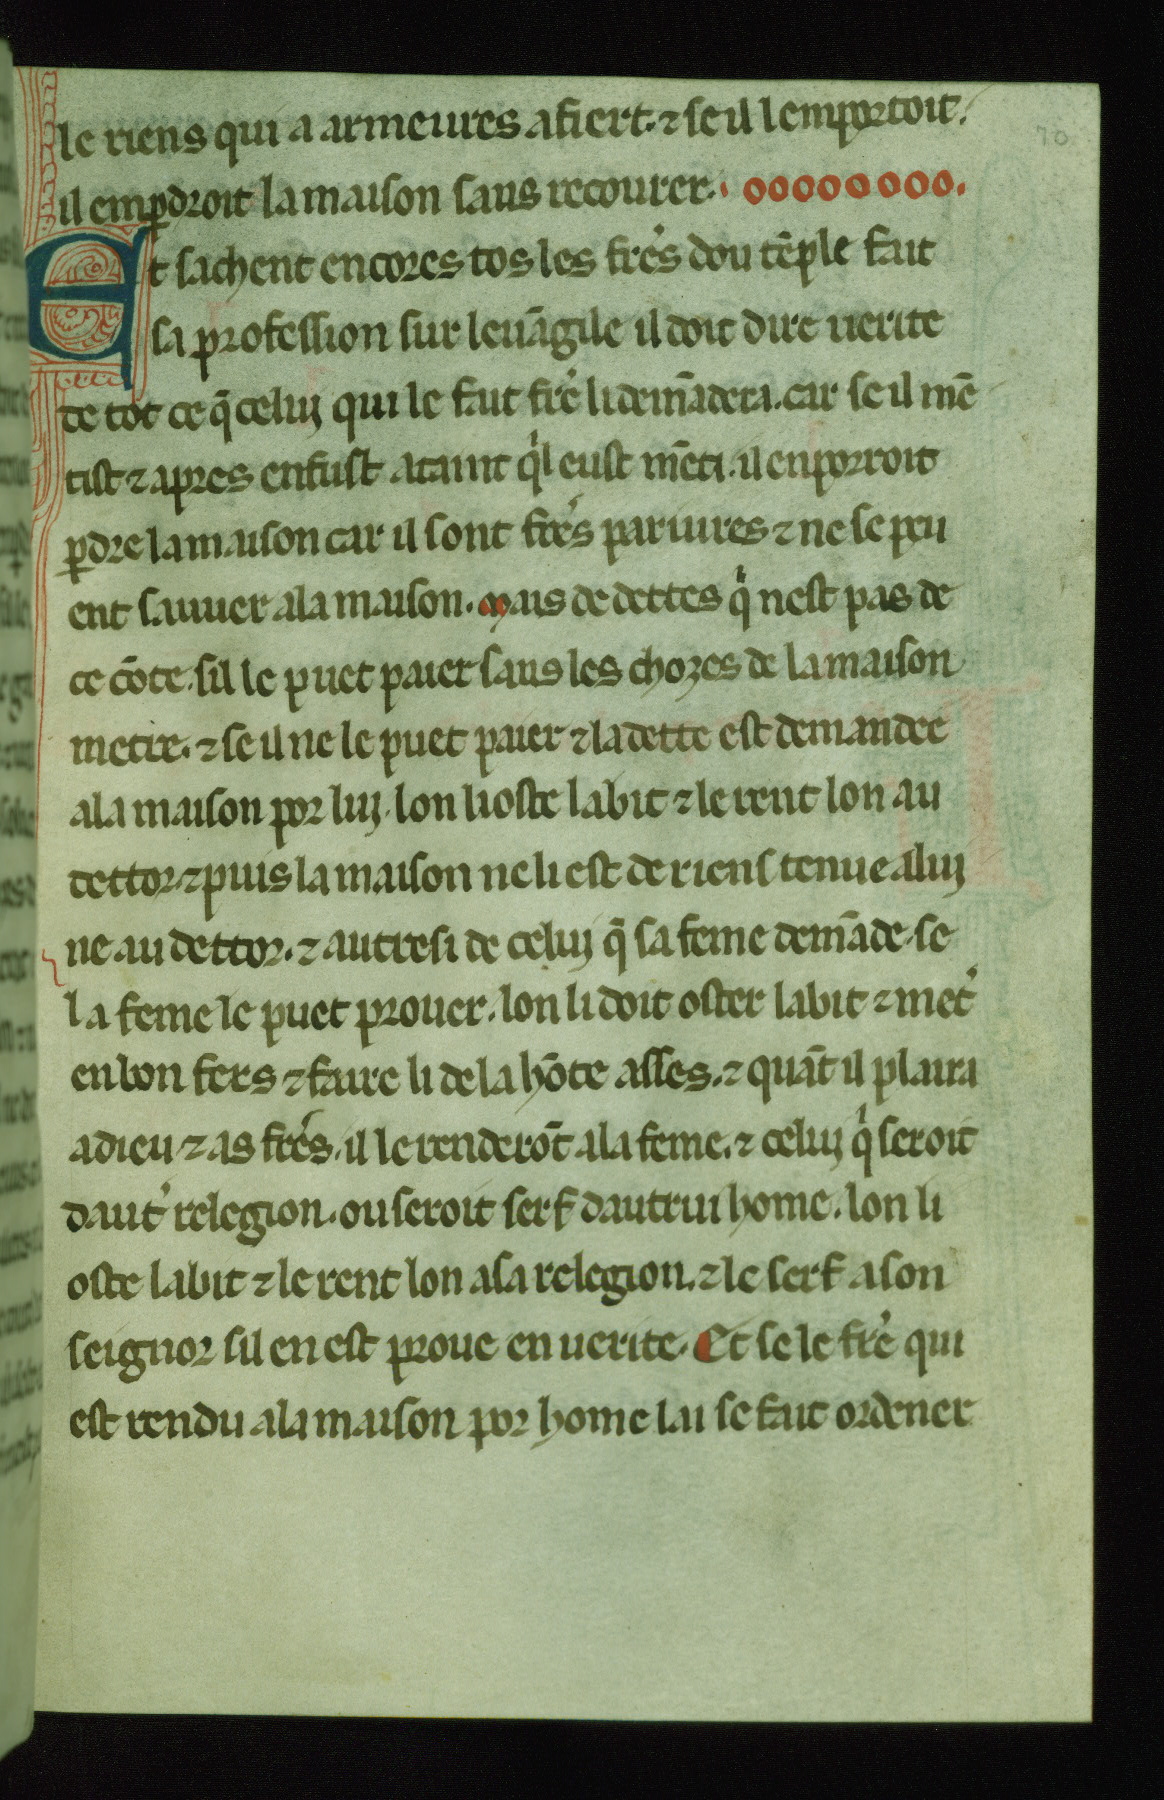 le riens qui a armeures afiert. ⁊ se il l emportoit.
il emꝑdroit la maison sans recourer. oooooooo.
Et sachent encores tos les frēs dou tēple fait
sa profession sur leuāgile il doit dire uerite
de tot ce q̄ celuy qui le fait frē li demādera. car se il mē
tist ⁊ apres en fust ataint qͥl eust mēti. il en porroit
ꝑdre la maison car il sont frēs pariures ⁊ ne se peu
ent sauuer a la maison. Mais de dettes qͥ nest pas de
ce cōte. sil le puet paier sans les chozes de la maison
metre. ⁊ se il ne le puet paier ⁊ la dette est demandee
a la maison por luy. lon li oste labit ⁊ le rent lon au
dettor. ⁊ puis la maison ne li est de riens tenue a luy
ne au dettor. ⁊ autresi de celuy q̄ sa feme demāde. se
la feme le puet prouer. lon li doit oster labit ⁊ met͛
en bon fers ⁊ faire li de la hōte asses. ⁊ quāt il plaira
a dieu ⁊ as frēs. il le renderōt a la feme. ⁊ celuy qͥ seroit
daut͛ relegion. ou seroit serf dautrui home. lon li
oste labit ⁊ le rent lon a sa relegion. ⁊ le serf a son
seignor sil en est proue en uerite. Et se le frē qui
est rendu a la maison por home lai se fait ordener
70